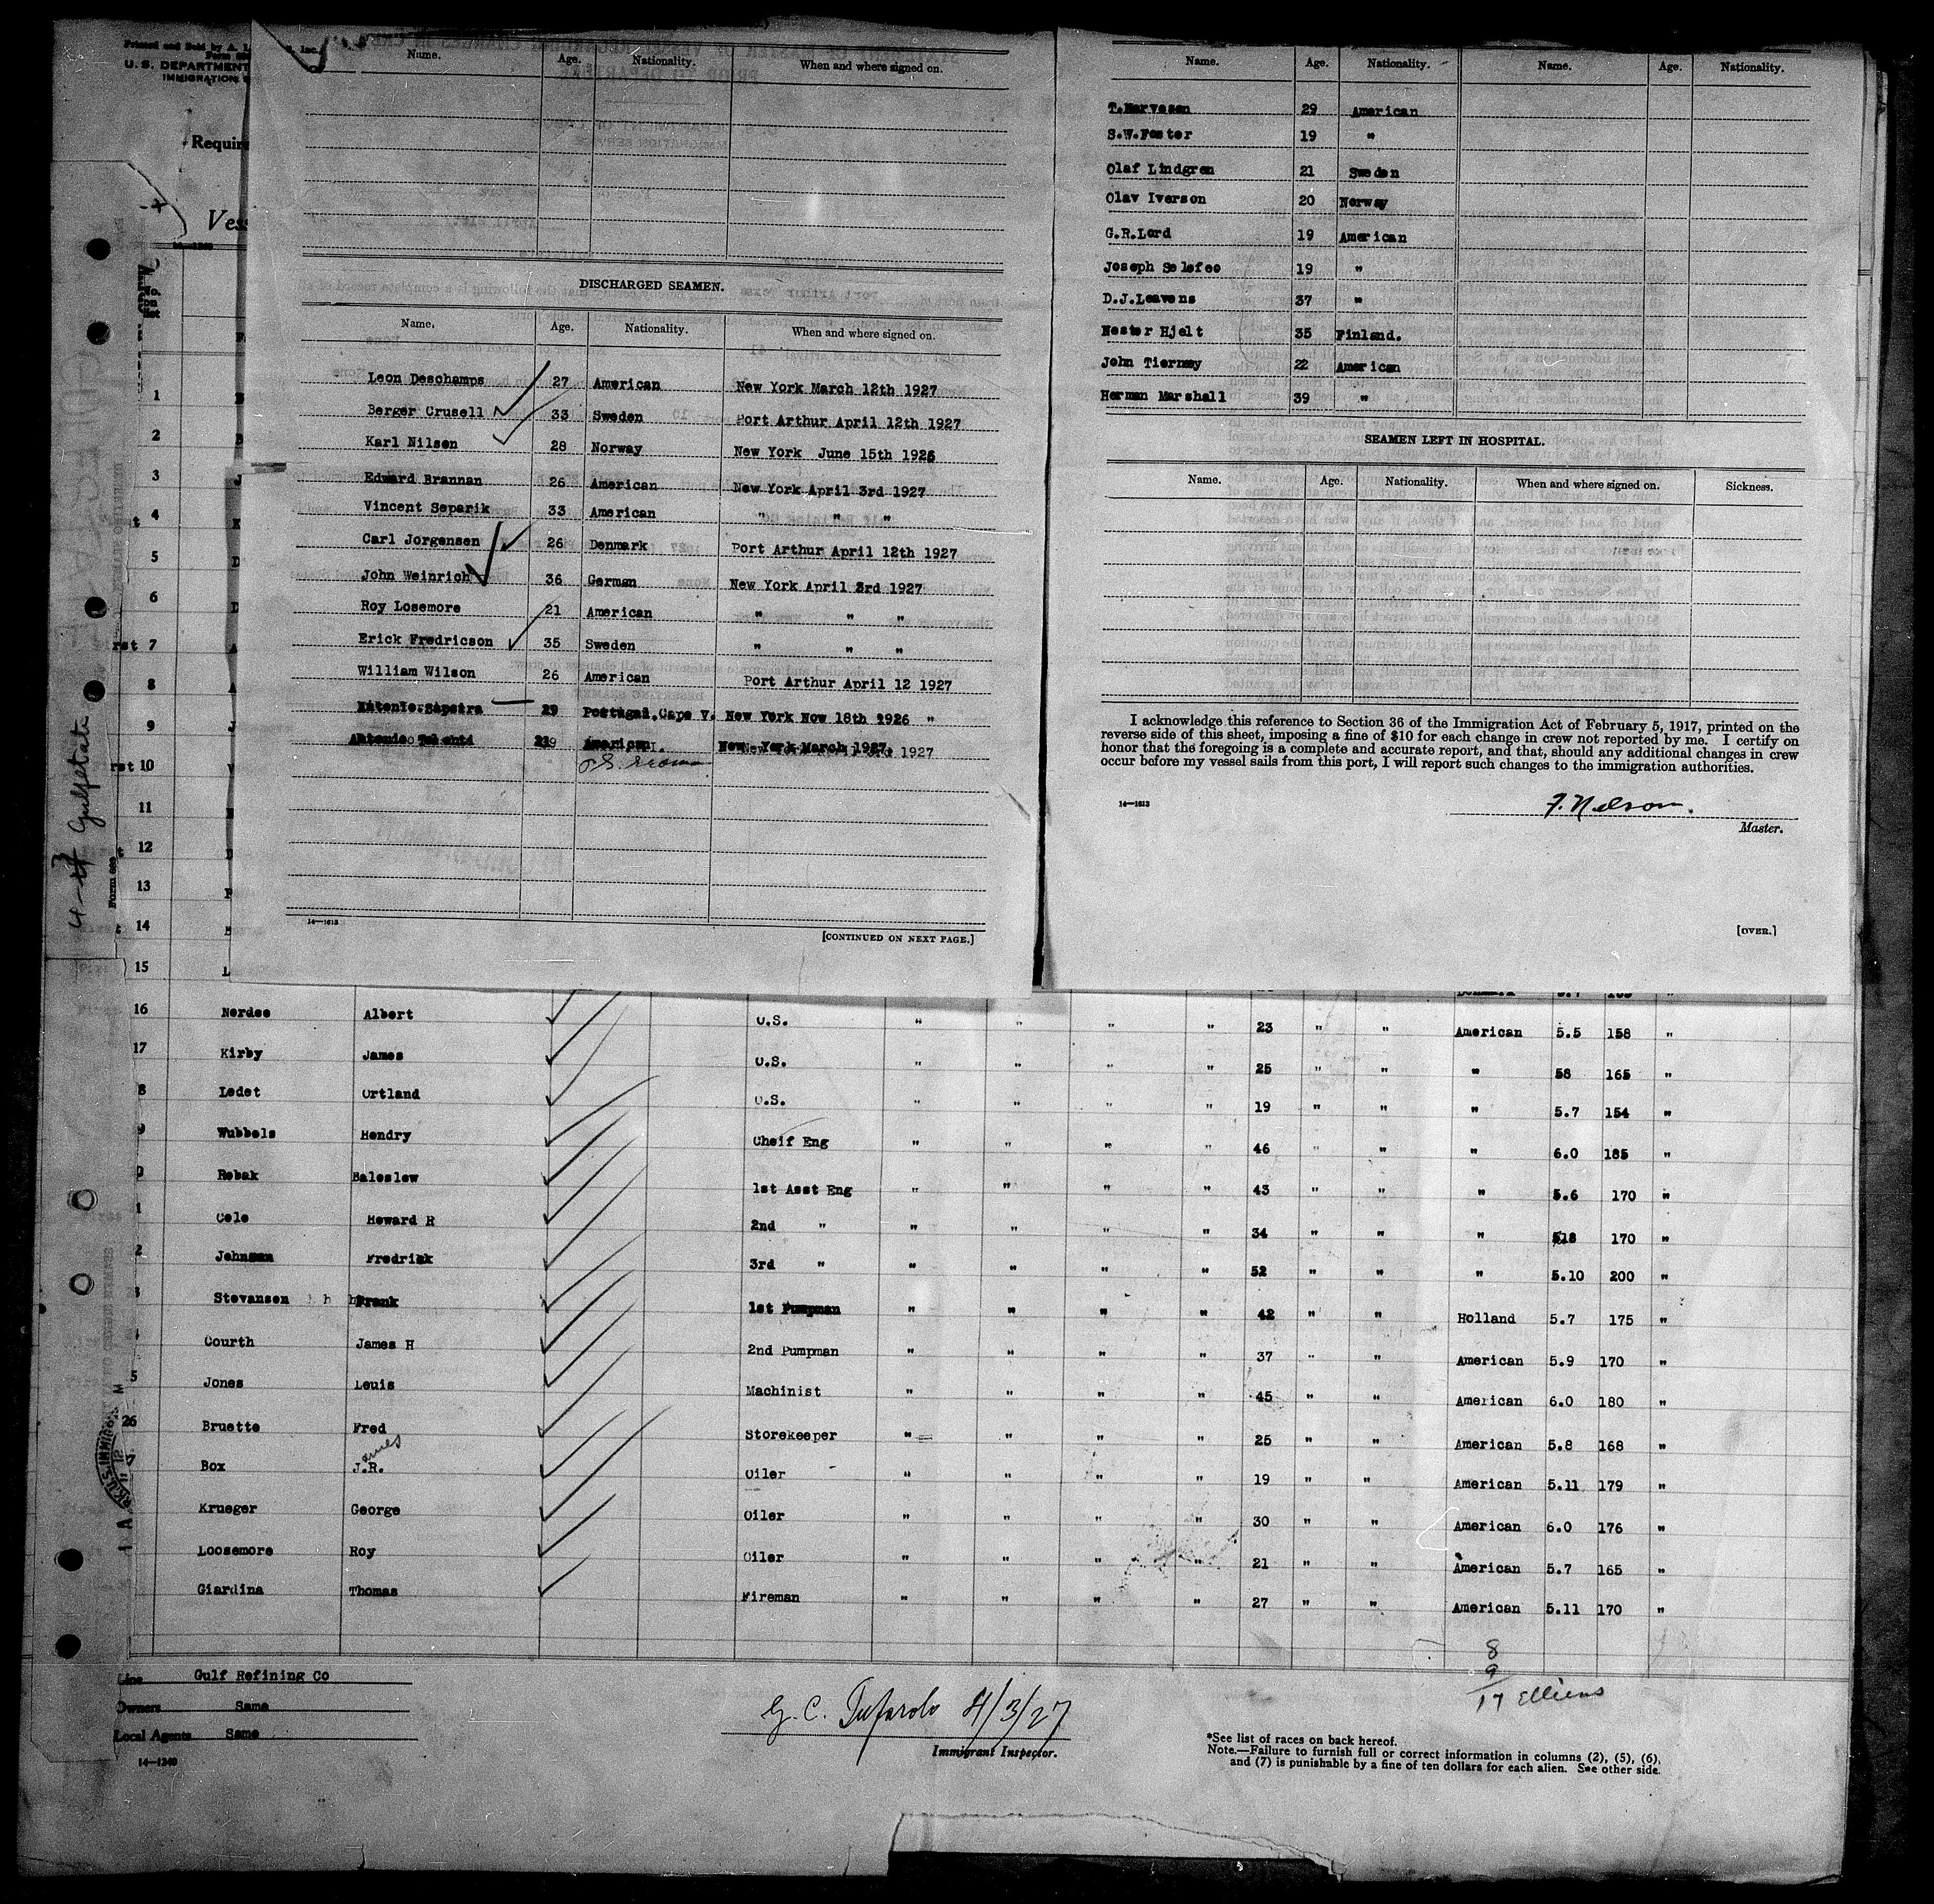 Printed and Sold by A. I.
Inc.
U. S. DEPARTMENT
IMMIGRATION S
Require
Vess
14-1240
No.
on
list
Name. Age. Nationality. When and where signed on.
DISCHARGED SEAMEN.
Name. Age. Nationality. When and where signed on.
Leon Deschamps 27 American New York March 12th 1927
Berger Crusell 33 Sweden Port Arthur April 12th 1927
Karl Nilsen 28 Norway New York June 15th 1926
Edward Brannan 26 American New York April 3rd 1927
Vincent Separik 33 American " " "
Carl Jorgensen 26 Denmark Port Arthur April 12th 1927
John Weinrich 36 German New York April 3rd 1927
Roy Losemore 21 American " " "
Erick Fredricson 35 Sweden " " "
William Wilson 26 American Port Arthur April 12 1927
29 Portugal. Cape V. New York Nov 18th 1926 "
Antonio American New York March 1927
14-1613
[CONTINUED ON NEXT PAGE.]
Name. Age. Nationality. Name. Age. Nationality.
T.Harvesen 29 American
S.W.Foster 19 "
Olaf Lindgren 21 Sweden
Olav Iverson 20 Norway
G.R.Lord 19 American
Joseph Selefeo 19 "
D.J.Leavens 37 "
Nester Hjelt 35 Finland.
John Tiernay 22 American
Herman Marshall 39 "
SEAMEN LEFT IN HOSPITAL.
Name. Age. Nationality. When and where signed on. Sickness.
I acknowledge this reference to Section 36 of the Immigration Act of February 5, 1917, printed on the
reverse side of this sheet, imposing a fine of $10 for each change in crew not reported by me. I certify on
honor that the foregoing is a complete and accurate report, and that, should any additional changes in crew
occur before my vessel sails from this port, I will report such changes to the immigration authorities.
14-1613
F. Nelson.
Master.
[OVER.]
1
2
3
4
5
6
rst 7
8
9
rst 10
11
12
13
14
15
4-3 Gulfstate
16 Nordee Albert O.S. " " " " 23 " " American 5.5 158 "
17 Kirby James O.S. " " " " 25 " " " 58 165 "
8 Ledet Ortland O.S. " " " " 19 " " " 5.7 154 "
9 Wubbels Hendry Cheif Eng " " " " 46 " " " 6.0 185 "
0 Rebak Baleslew 1st Asst Eng " " " " 43 " " " 5.6 170 "
1 Cole Howard R 2nd " " " " " 34 " " " 170 "
2 Johnson Fredrick 3rd " " " " " 52 " " " 5.10 200 "
3 Stevansen Frank 1st Pumpman " " " " 42 " " Holland 5.7 175 "
4 Courth James H 2nd Pumpman " " " " 37 " " American 5.9 170 "
5 Jones Louis Machinist " " " " 45 " " American 6.0 180 "
26 Bruette Fred Storekeeper " " " " 25 " " American 5.8 168 "
Box J.R. ames Oiler " " " " 19 " " American 5.11 179 "
Krueger George Oiler " " " " 30 " " American 6.0 176 "
Loosemore Roy Oiler " " " " 21 " " American 5.7 165 "
Giardina Thomas Fireman " " " " 27 " " American 5.11 170 "
8
9
17 Elliens
Line Gulf Refining Co
Owners Same
Local Agents Same
14-1240
G. C. Tufarolo 4/3/27
Immigrant Inspector.
*See list of races on back hereof.
Note.—Failure to furnish full or correct information in columns (2), (5), (6),
and (7) is punishable by a fine of ten dollars for each alien. See other side.